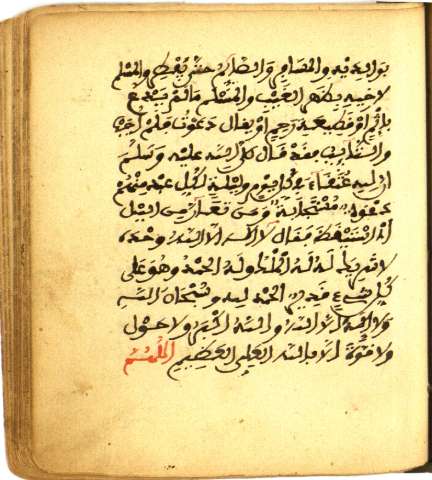 بوالديه والمسافر والصائم حتى يفطر والمسلم
لاخيه بظهر الغيب والمسلم مالم يدع
باثم او قطيعة رحم او يقال دعوت فلم اجب
والتائب فقد قال صلى الله عليه وسلم
ان لله عتقاء في كل يوم وليلة لكل عبد منهم
دعوة مستجابة ومن تعار من اليل
اذ استيقظ فقال لا اله الا الله وحده
لا شريك له له الملك وله الحمد وهو على
كل شيء قدير الحمد لله وسبحان الله
ولا اله الا الله والله اكبر ولا حول
ولا قوة الا بالله العلي العظيم اللهم